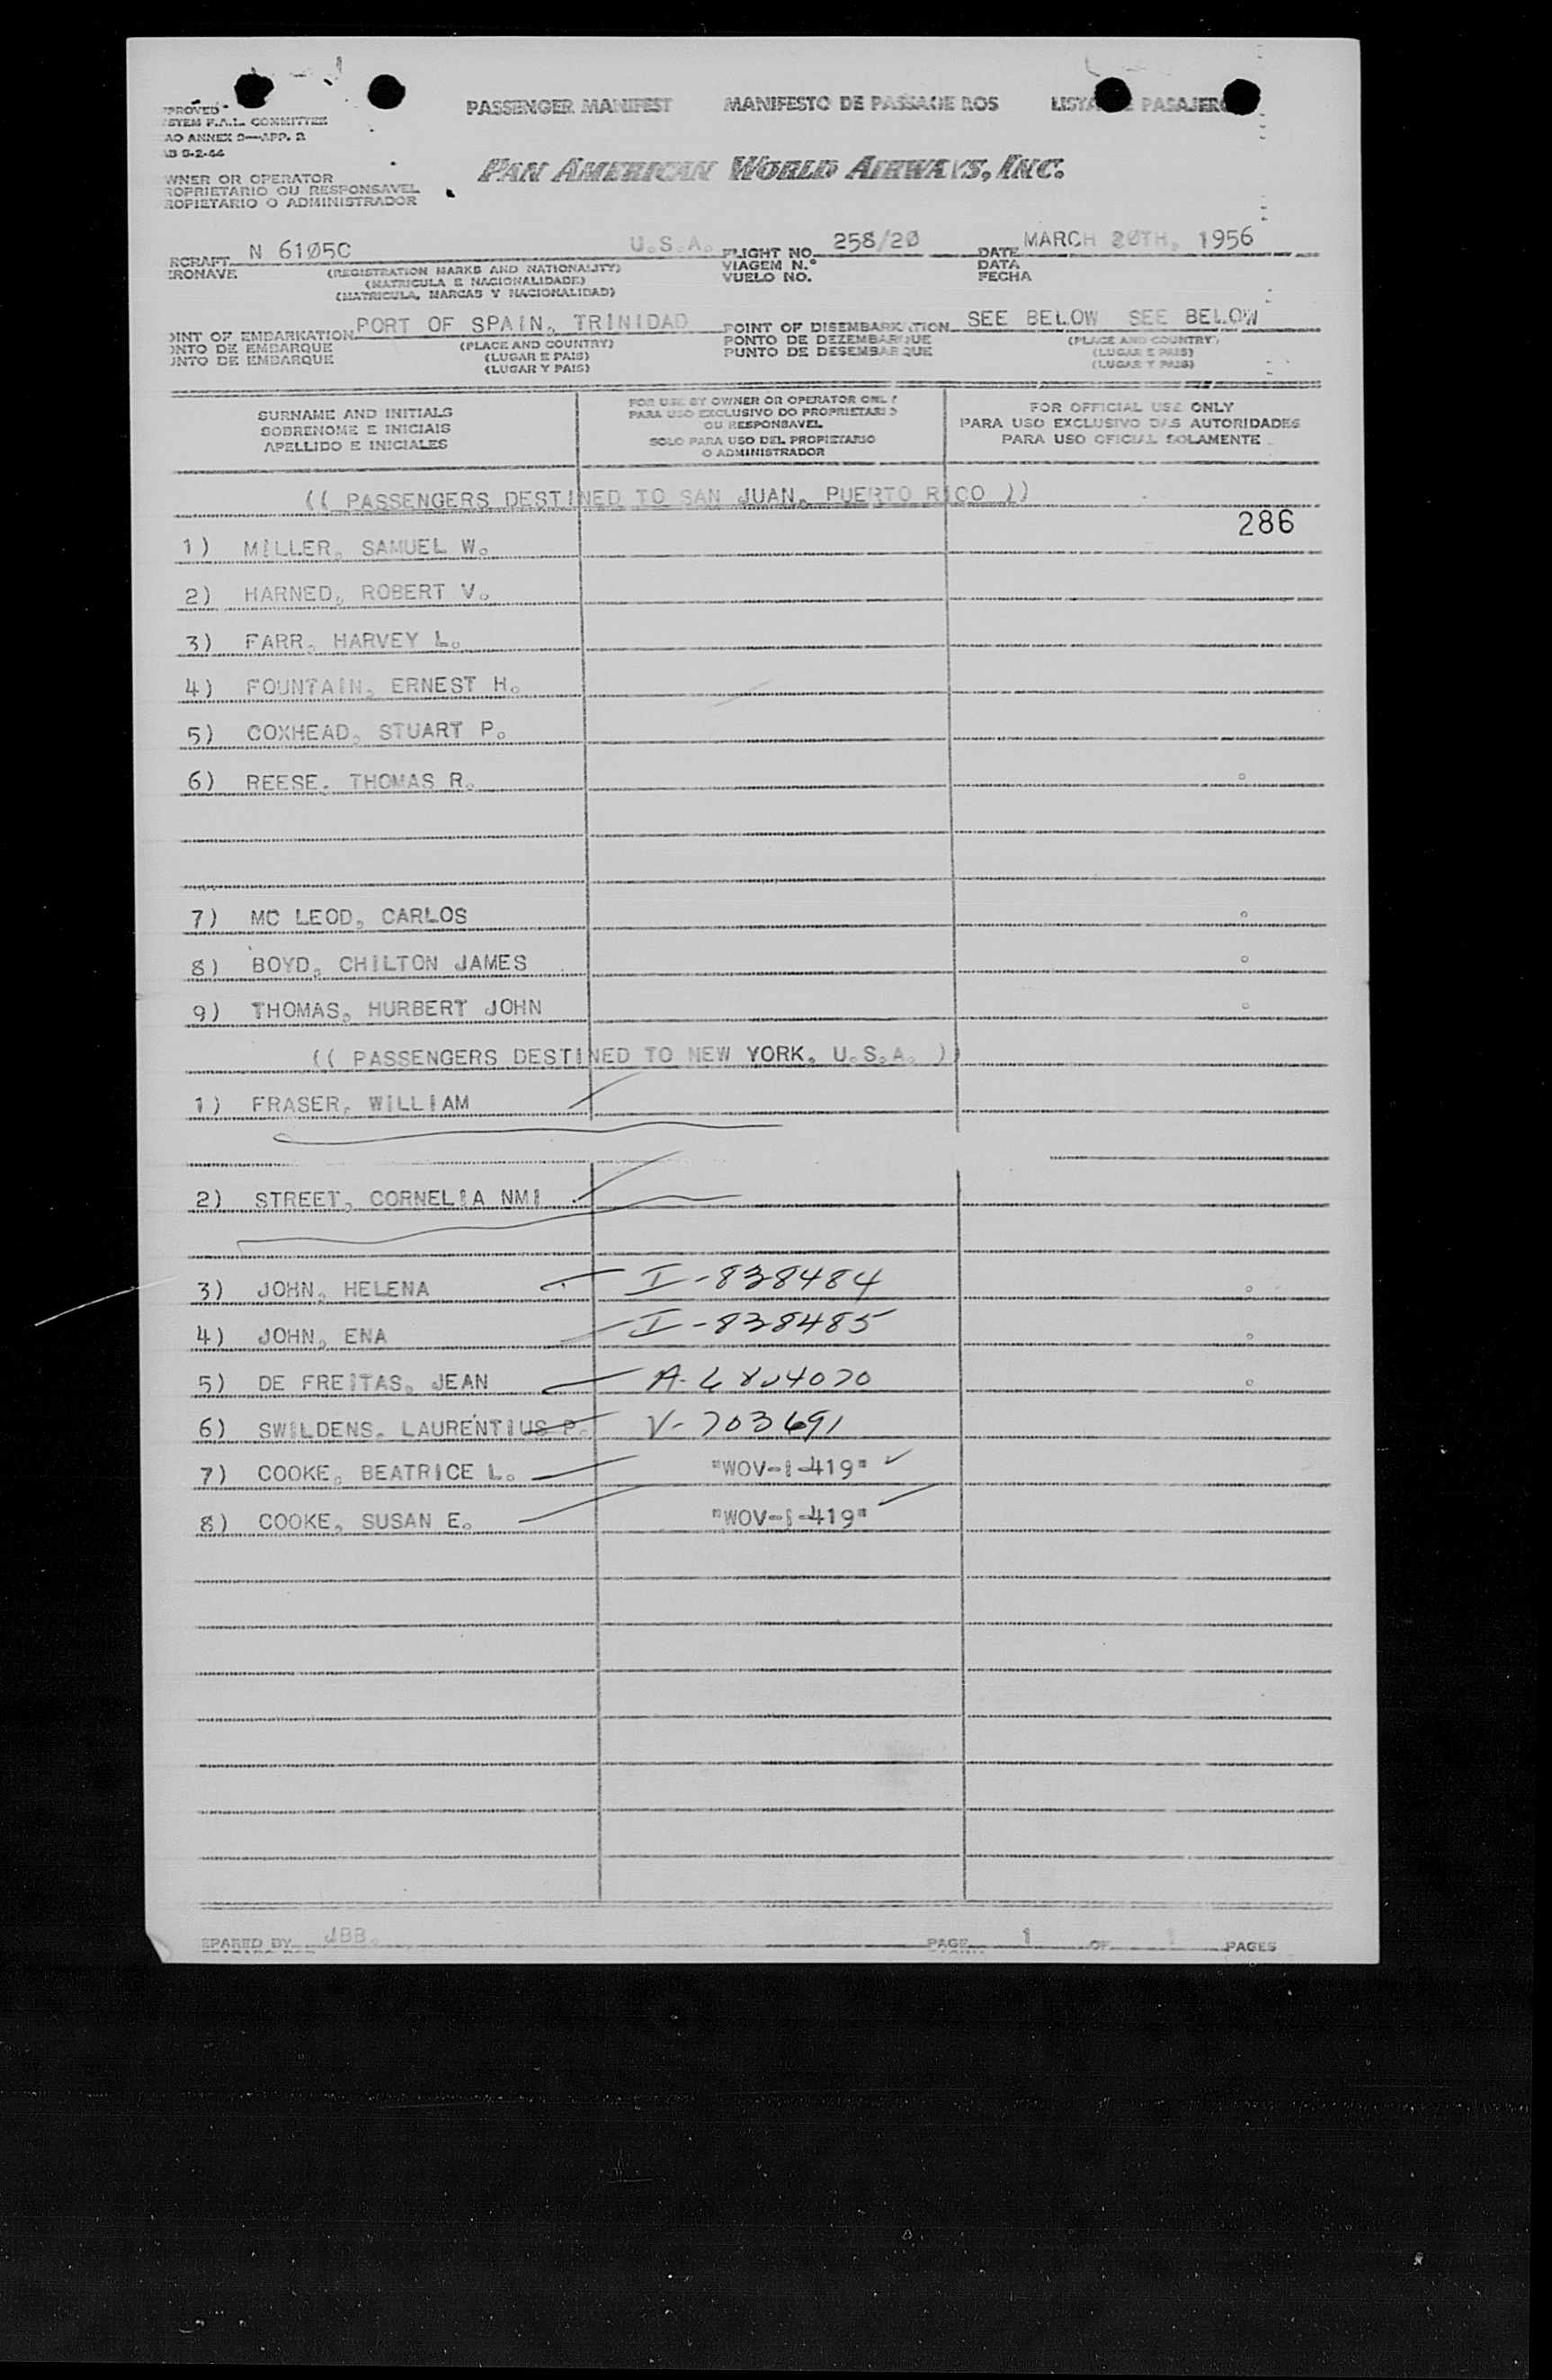 PASSENGER MANIFEST MANIFESTO DE PASSAGEIROS LISTA PASAJER
PROVED
STEM F.A.L. COMMITTEE
AO ANNEX 9—APP. 2
AB 9-2-44
PAN AMERICAN WORLD AIRWAYS, INC.
WNER OR OPERATOR
ROPRIETARIO OU RESPONSAVEL
ROPIETARIO O ADMINISTRADOR
RCRAFT N 6105C U.S.A. FLIGHT NO. 258/20 DATE MARCH 20TH, 1956
ERONAVE (REGISTRATION MARKS AND NATIONALITY) VIAGEM N.° DATA
(MATRICULA E NACIONALIDADE) VUELO NO. FECHA
(MATRICULA, MARCAS Y NACIONALIDAD)
OINT OF EMBARKATION PORT OF SPAIN, TRINIDAD POINT OF DISEMBARKATION SEE BELOW SEE BELOW
ONTO DE EMBARQUE (PLACE AND COUNTRY) PONTO DE DEZEMBARQUE (PLACE AND COUNTRY)
UNTO DE EMBARQUE (LUGAR E PAIS) PUNTO DE DESEMBARQUE (LUGAR E PAIS)
(LUGAR Y PAIS) (LUGAR Y PAIS)
SURNAME AND INITIALS
SOBRENOME E INICIAIS
APELLIDO E INICIALES
FOR USE BY OWNER OR OPERATOR ONLY
PARA USO EXCLUSIVO DO PROPRIETARIO
OU RESPONSAVEL
SOLO PARA USO DEL PROPIETARIO
O ADMINISTRADOR
FOR OFFICIAL USE ONLY
PARA USO EXCLUSIVO DAS AUTORIDADES
PARA USO OFICIAL SOLAMENTE
(( PASSENGERS DESTINED TO SAN JUAN, PUERTO RICO ))
286
1) MILLER, SAMUEL W.
2) HARNED, ROBERT V.
3) FARR, HARVEY L.
4) FOUNTAIN, ERNEST H.
5) COXHEAD, STUART P.
6) REESE, THOMAS R.
7) MC LEOD, CARLOS
8) BOYD, CHILTON JAMES
9) THOMAS, HURBERT JOHN
(( PASSENGERS DESTINED TO NEW YORK, U.S.A. ))
1) FRASER, WILLIAM
2) STREET, CORNELIA NMI
3) JOHN, HELENA I-838484
4) JOHN, ENA I-838485
5) DE FREITAS, JEAN
6) SWILDENS, LAURENTIUS P. V-703691
7) COOKE, BEATRICE L. "WOV-1-419"
8) COOKE, SUSAN E. "WOV-1-419"
EPARED BY JBB. PAGE 1 OF 1 PAGES